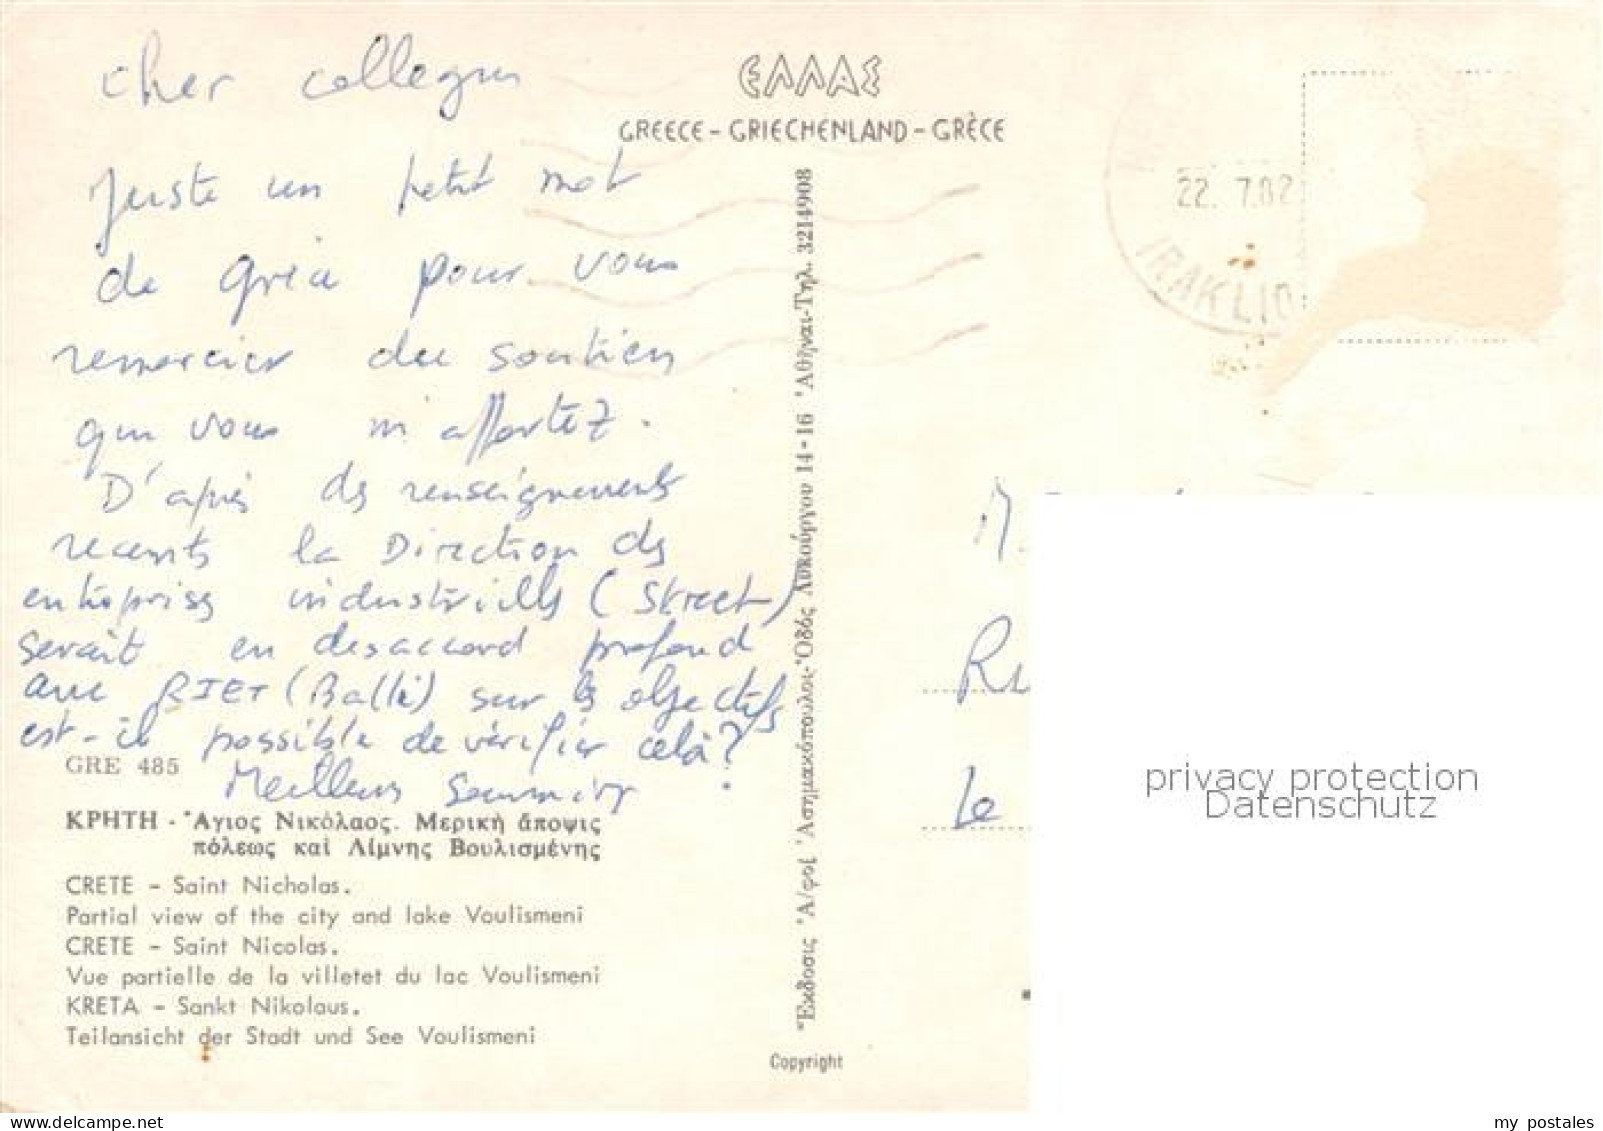 ΕΛΛΑΣ
GREECE - GRIECHENLAND - GRÈCE
22. 7.82
IRAKLIO
cher collegue
Juste un petit mot
de grèce pour vous
remercier du soutien
que vous m'apportez.
D'après des renseignements
recents la Direction des
entreprises industrielles (Street)
serait en desaccord profond
avec BIET (Balli) sur les objectifs
est-il possible de vérifier celà?
Meilleurs Souvenirs
GRE 485
ΚΡΗΤΗ - Ἅγιος Νικόλαος. Μερικὴ ἄποψις
πόλεως καὶ Λίμνης Βουλισμένης
CRETE - Saint Nicholas.
Partial view of the city and lake Voulismeni
CRETE - Saint Nicolas.
Vue partielle de la villetet du lac Voulismeni
KRETA - Sankt Nikolaus.
Teilansicht der Stadt und See Voulismeni
Ἔκδοσις Ἀ/φοὶ Ἀσημακόπουλοι-Ὁδός Λυκούργου 14-16 Ἀθῆναι-Τηλ. 3214908
Copyright
M.
Le
privacy protection
Datenschutz
my postales